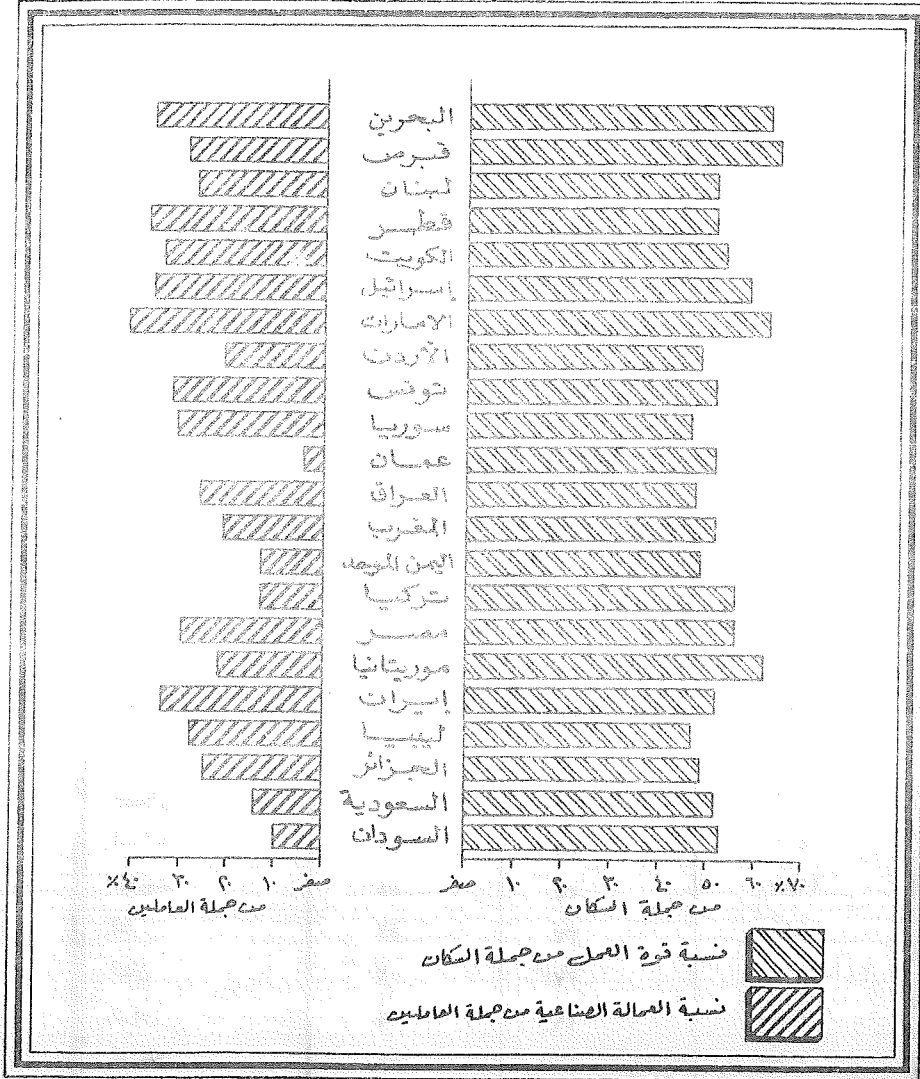 البحرين
قبرص
لبنان
قطر
الكويت
إسرائيل
الامارات
الأردن
تونس
سوريا
عمان
العراق
المغرب
اليمن الموحد
تركيا
مصر
موريتانيا
إيران
ليبيا
الجزائر
السعودية
السودان
صفر ١٠ ٢٠ ٣٠ ٤٠ ٥٠ ٦٠ ٧٠٪
من جملة السكان
صفر ١٠ ٢٠ ٣٠ ٤٠٪
من جملة العاملين
نسبة قوة العمل من جملة السكان
نسبة العمالة الصناعية من جملة العاملين